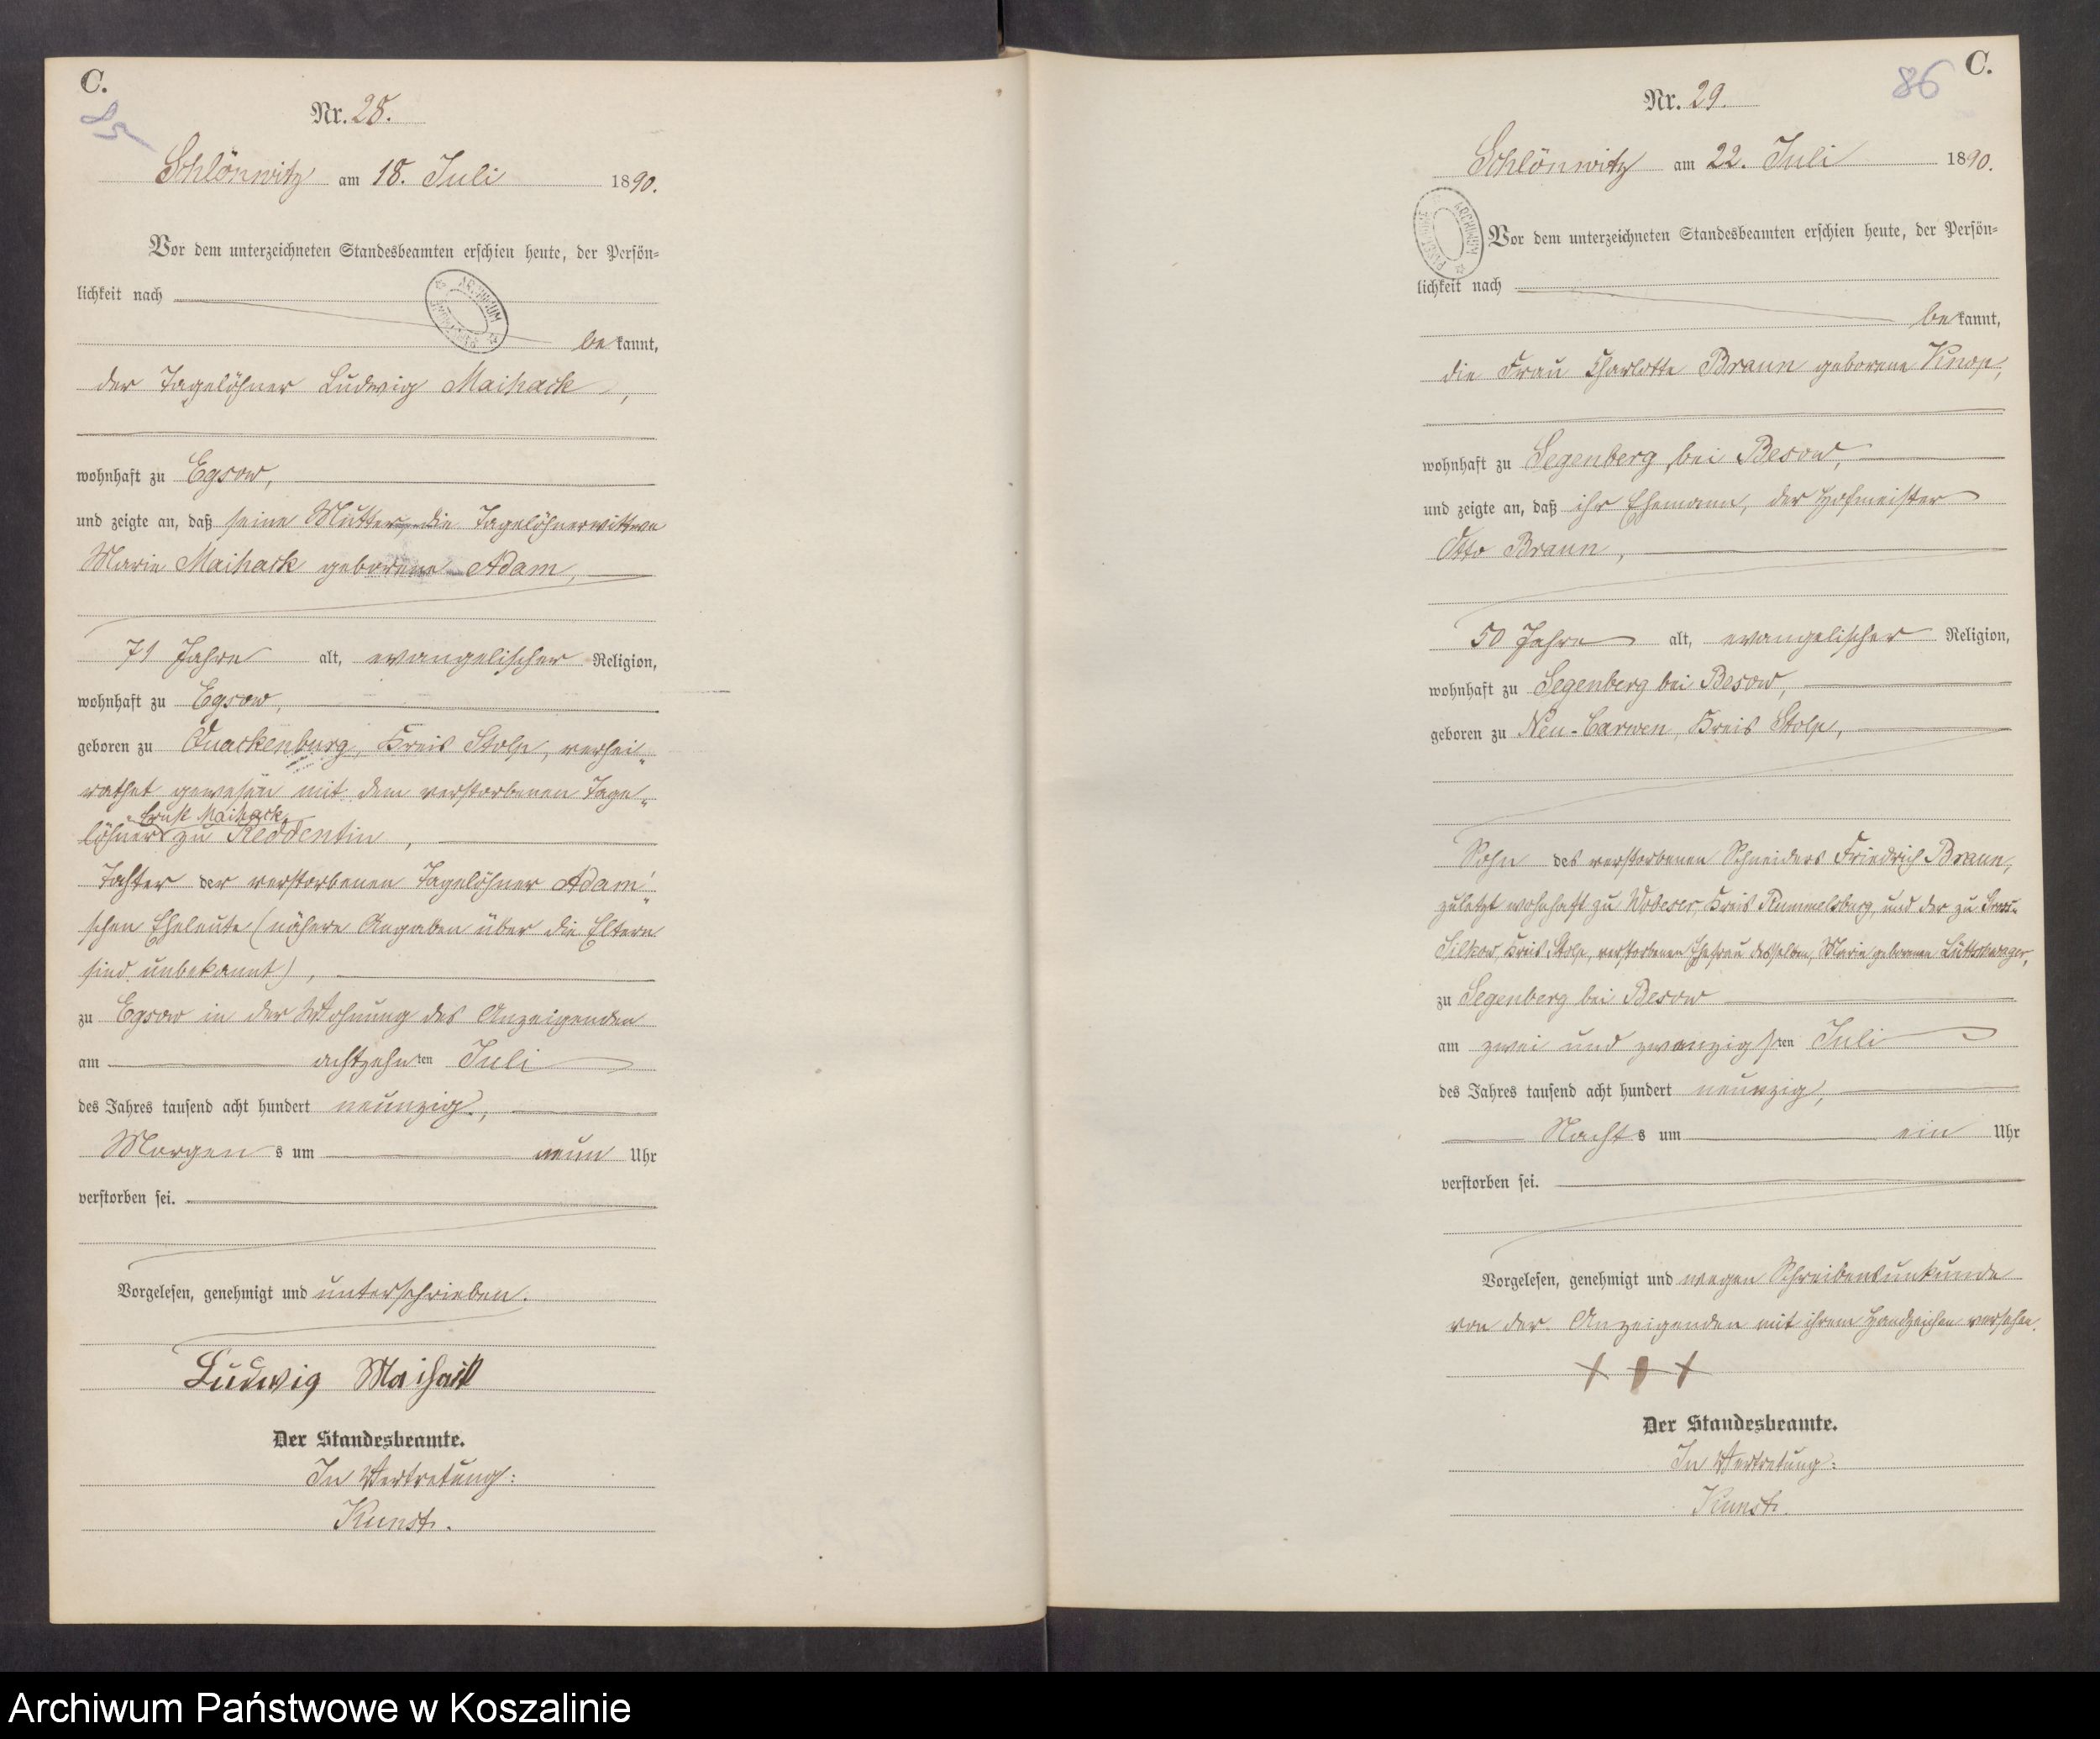 C.
Nr. 28.
Schlönwitz am 18. Juli 1890.
Vor dem unterzeichneten Standesbeamten erschien heute, der Persön=
lichkeit nach
bekannt,
der Tagelöhner Ludwig Maihack,
wohnhaft zu Egsow,
und zeigte an, daß seine Mutter, die Tagelöhnerwittwe
Marie Maihack geborene Adam,
71 Jahre alt, evangelischer Religion,
wohnhaft zu Egsow,
geboren zu Quackenburg, Kreis Stolp, verhei=
rathet gewesen mit dem verstorbenen Tage=
Ernst Maihack
löhner zu Reddentin,
Tochter der verstorbenen Tagelöhner Adam'=
schen Eheleute (nähere Angaben über die Eltern
sind unbekannt),
zu Egsow in der Wohnung des Anzeigenden
am achtzehnten Juli
des Jahres tausend acht hundert neunzig,
Morgens um neun Uhr
verstorben sei.
Vorgelesen, genehmigt und unterschrieben.
Ludwig Maihack
Der Standesbeamte.
In Vertretung:
Kunst.
C.
86
Nr. 29.
Schlönwitz am 22. Juli 1890.
ARCHIWUM
Vor dem unterzeichneten Standesbeamten erschien heute, der Persön=
lichkeit nach
bekannt,
die Frau Charlotte Braun geborene Knop,
wohnhaft zu Segenberg bei Besow,
und zeigte an, daß ihr Ehemann, der Hofmeister
Otto Braun,
50 Jahre alt, evangelischer Religion,
wohnhaft zu Segenberg bei Besow,
geboren zu Neu-Carwen, Kreis Stolp,
Sohn des verstorbenen Schneiders Friedrich Braun,
zuletzt wohnhaft zu Wobeser, Kreis Rummelsburg, und der zu
Silkow, Kreis Stolp, verstorbenen Ehefrau desselben, Marie geborenen Lüttschwager,
zu Segenberg bei Besow
am zwei und zwanzigsten Juli
des Jahres tausend acht hundert neunzig,
Nachts um ein Uhr
verstorben sei.
Vorgelesen, genehmigt und wegen Schreibensunkunde
von der Anzeigenden mit ihrem Handzeichen versehen.
+ + +
Der Standesbeamte.
In Vertretung:
Kunst.
Archiwum Państwowe w Koszalinie